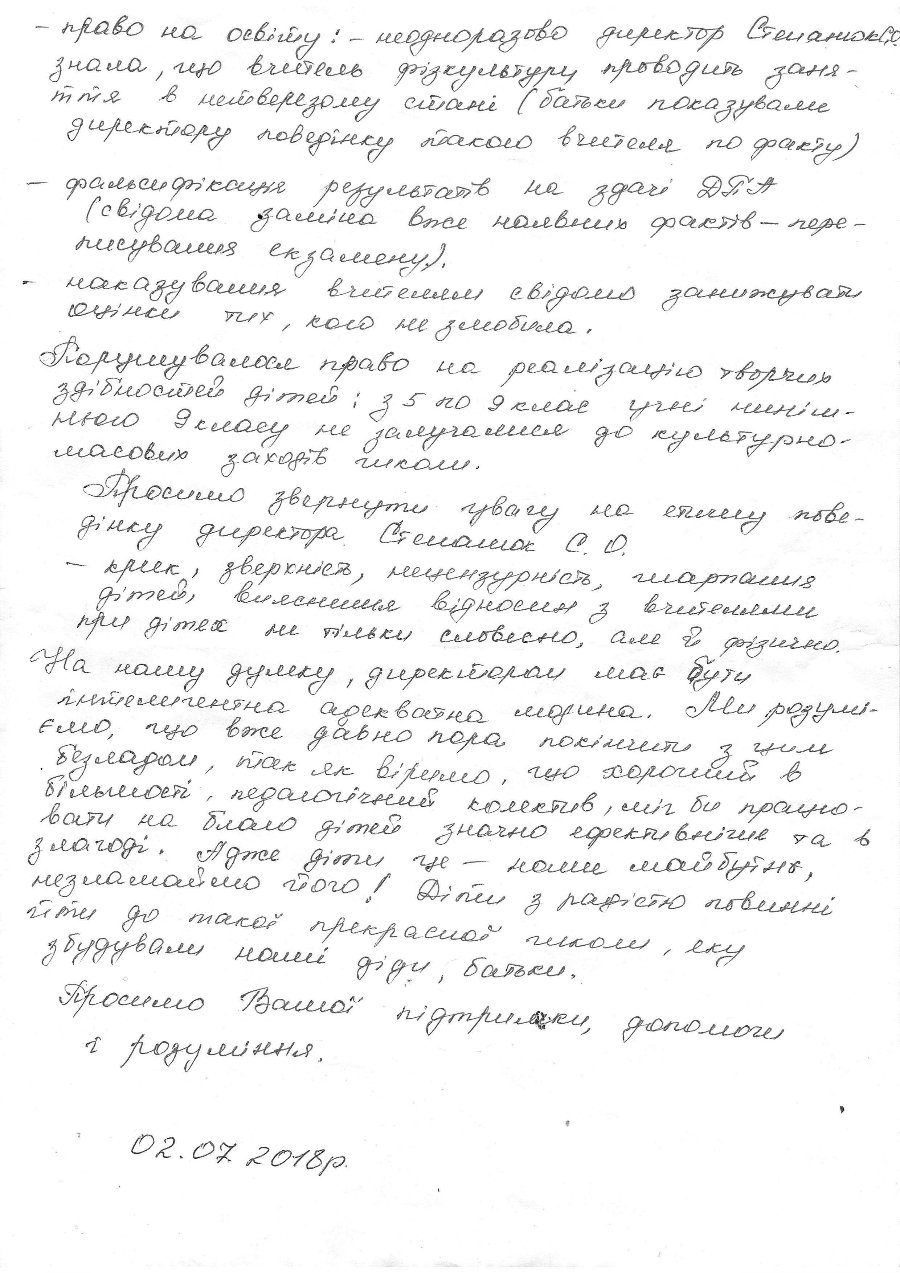 - право на освіту: - неодноразово директор Степанюк С.О.
знала, що вчитель фізкультури проводить заня-
ття в нетверезому стані (батьки показували
директору поведінку такого вчителя по факту)
- фальсифікація результатів на здачі ДПА
(свідома заміна вже наявних фактів - пере-
писування екзамену).
- наказування вчителям свідомо занижувати
оцінки тих, кого не злюбила.
Порушувалося право на реалізацію творчих
здібностей дітей: з 5 по 9 клас учні ниніш-
нього 9 класу не залучалися до культурно-
масових заходів школи.
Просимо звернути увагу на етичну пове-
дінку директора Степанюк С.О.
- крик, зверхність, нецензурність, шарпання
дітей, вияснення відносин з вчителями
при дітях не тільки словесно, але й фізично.
На нашу думку, директором має бути
інтелигентна адекватна людина. Ми розумі-
ємо, що вже давно пора покінчити з цим
безладом, так як віримо, що хороший в
більшості, педагогічний колектив, міг би працю-
вати на благо дітей значно ефективніше та в
злагоді. Адже діти це - наше майбутнє,
незламаймо його! Діти з радістю повинні
йти до такої прекрасної школи, яку
збудували наші діди, батьки.
Просимо Вашої підтримки, допомоги
і розуміння.
02.07.2018р.